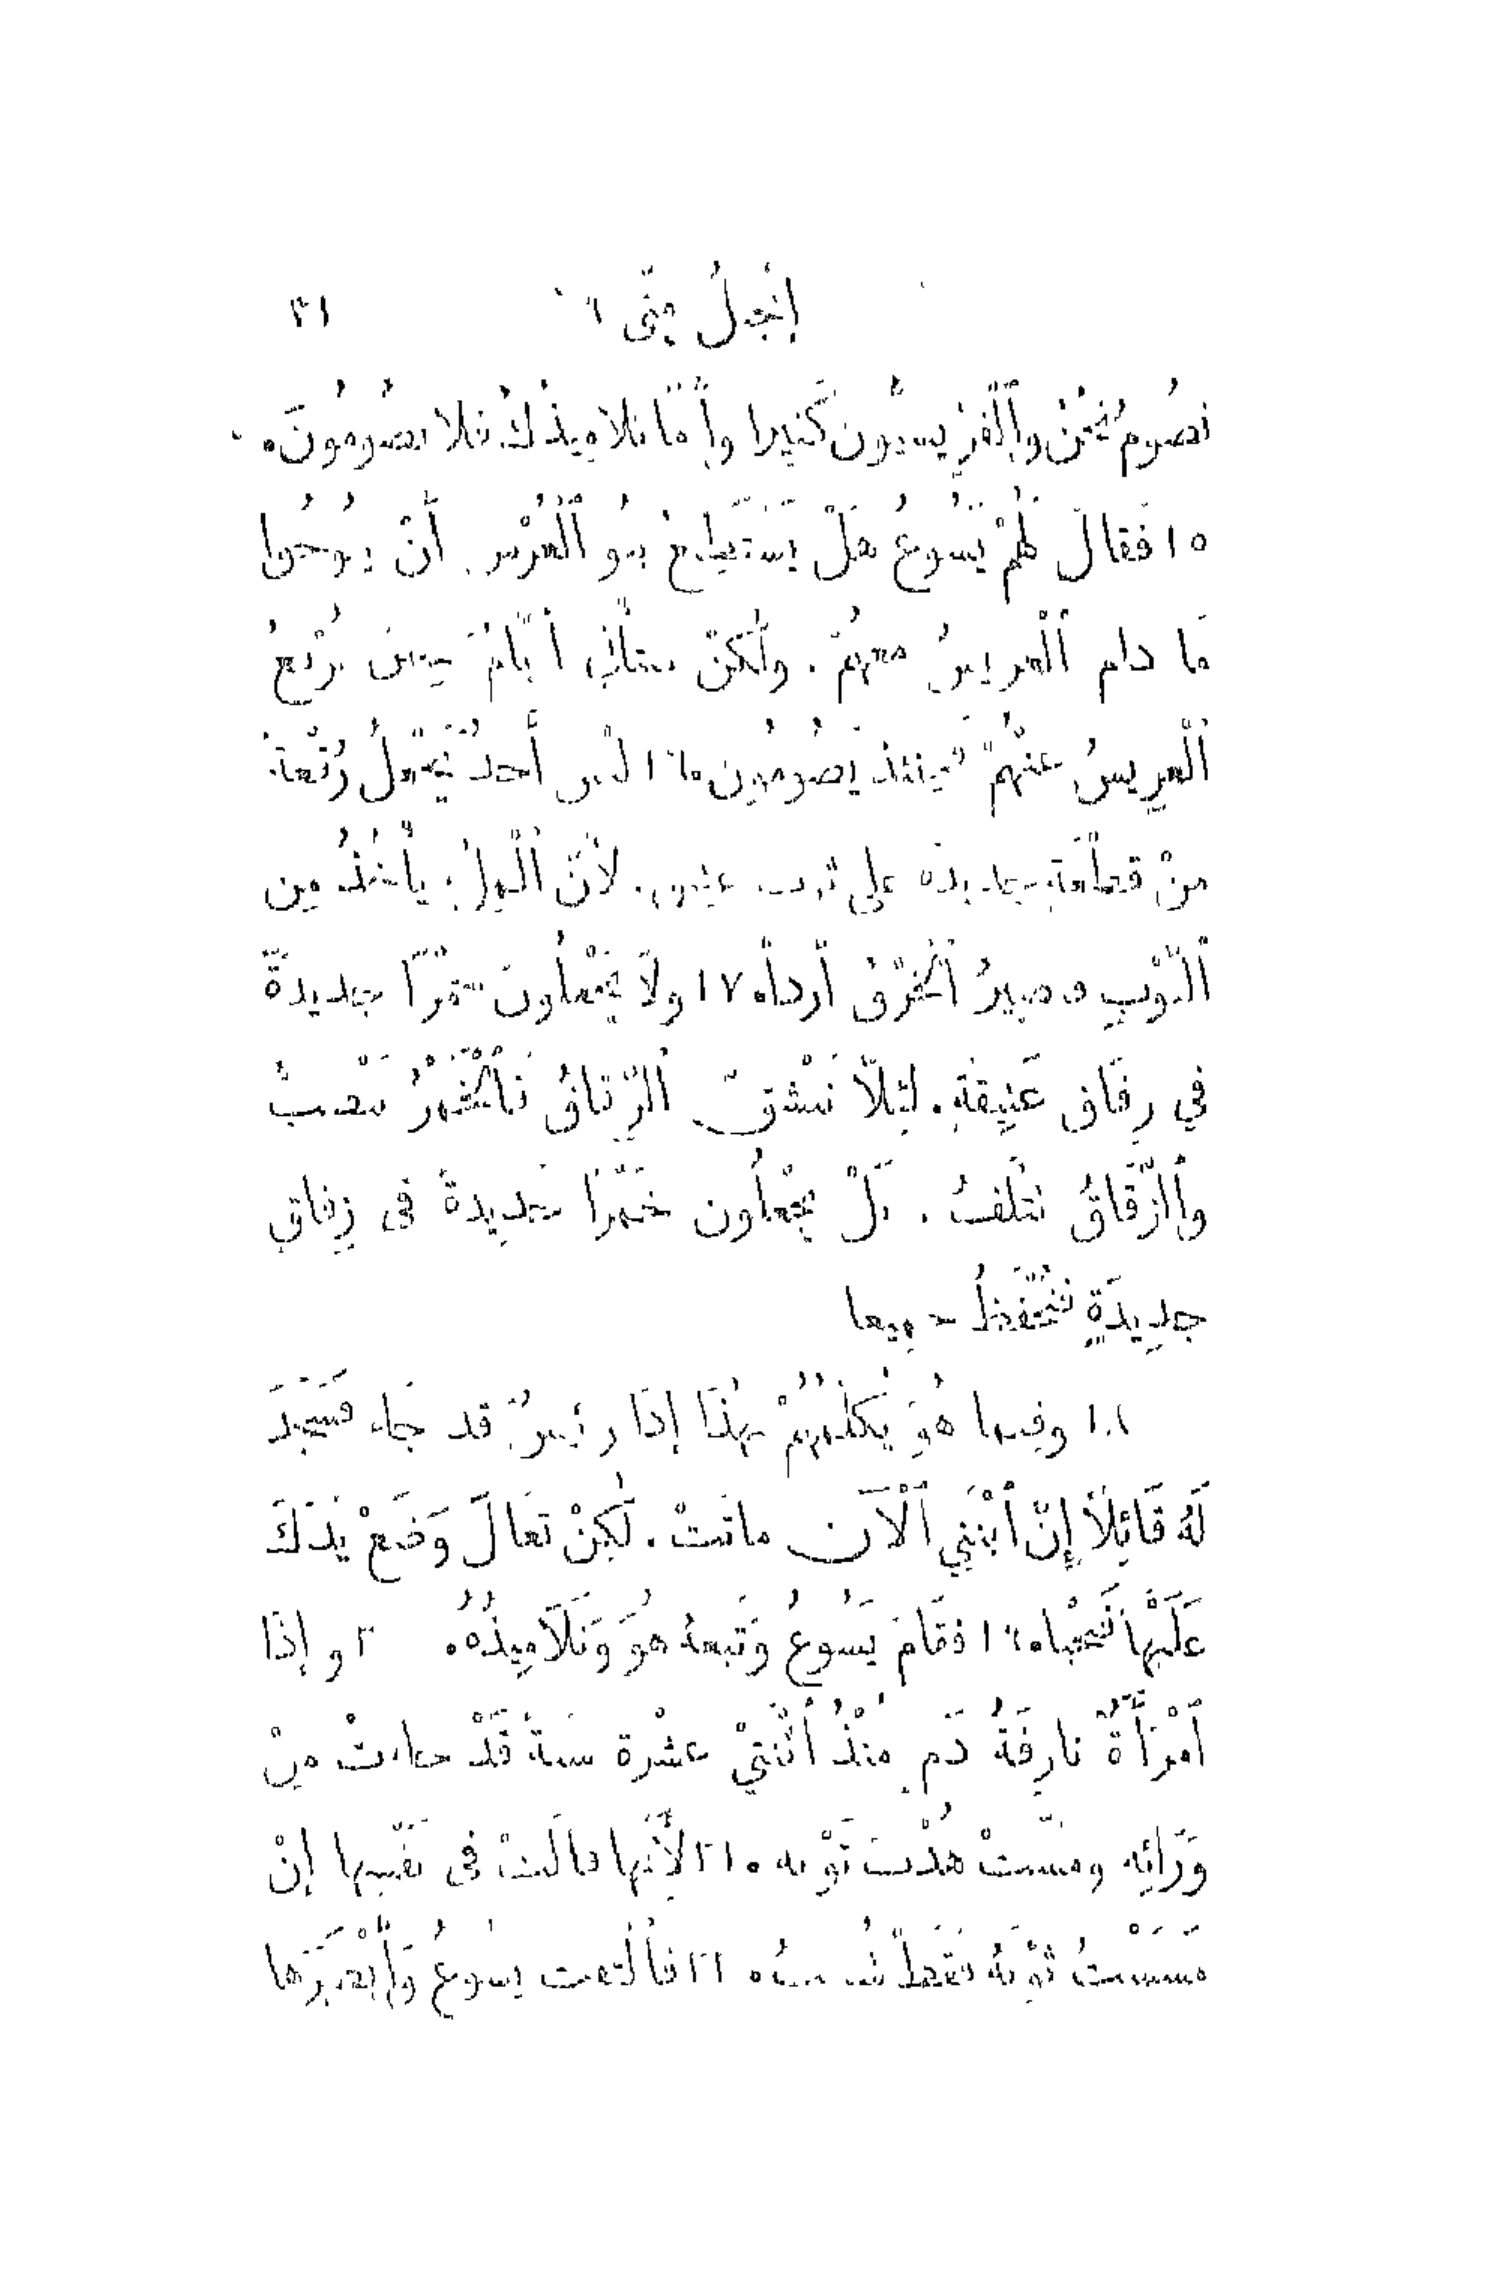 إنجيلُ متّى ٩ ٣١
نصُومُ نحْنُ وٱلْفرِّيسيُّون كَثيرا وأَمَّا تلاميذُكَ فلا يصُومُونَ.
١٥ فَقالَ لَهُمْ يَسُوعُ هَلْ يَسْتَطِيعُ بنُو ٱلْعُرْسِ أَنْ ينُوحُوا
مَا دام ٱلْعريسُ معهُمْ. ولٰكنْ ستأْتي أَيَّامٌ حِينَ يُرْفعُ
ٱلْعرِيسُ عنْهُمْ فحِينئذ يَصُومُون. ١٦ ليْس أَحدٌ يَجْعلُ رُقْعةً
منْ قطْعَةٍ جديدَة على ثوب عتيق. لأَنَّ ٱلْملْءَ يأْخُذُ من
ٱلثَّوْبِ فيصيرُ ٱلْخَرْقُ أَردأَ. ١٧ ولَا يَجْعلُونَ خَمْرًا جديدَةً
في زِقَاق عَتِيقَةٍ. لِئلَّا تَنْشقَّ ٱلزِّقاقُ فَٱلْخَمْرُ تَنْصبُّ
وٱلزِّقَاقُ تتْلفُ. بَلْ يَجْعلُون خَمْرًا جَديدةً فى زِقاقٍ
جدِيدَةٍ فَتُحْفَظُ جميعا
١٨ وفيما هُوَ يُكَلِّمُهُمْ بهٰذَا إذَا رئيسٌ قد جَاء فَسَجَدَ
لَهُ قَائِلًا إِنَّ ٱبْنَتِي ٱلْآنَ ماتَتْ. لٰكنْ تَعَالَ وَضَعْ يَدَكَ
عَلَيْهَا فَتَحْيا. ١٩ فقَامَ يَسُوعُ وَتَبعهُ هُوَ وَتَلَامِيذُهُ. ٢٠ وإِذَا
ٱمْرَأَةٌ نازِفَةُ دَمٍ مُنْذُ ٱثْنَتيْ عشْرة سَنةً قَدْ جاءتْ منْ
وَرَائِه ومسَّتْ هُدْبَ ثَوْبه. ٢١ لأَنَّها قالَتْ فى نَفْسِها إنْ
مَسَسْتُ ثَوْبَهُ فَقَطْ شُفيتُ. ٢٢ فٱلْتفت يسُوعُ وَأَبْصَرَها